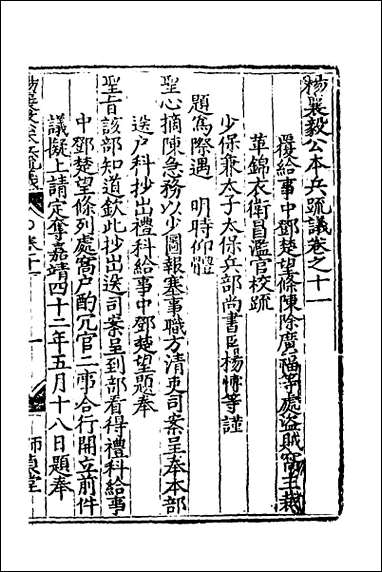 楊襄毅公本兵疏議卷之十一
覆給事中鄧楚望條陳除廣福等處盜賊窩主裁
革錦衣衛冒濫官校疏
少保兼太子太保兵部尚書臣楊博等謹
題為際遇　明時仰體
聖心摘陳急務以少圖報塞事職方清吏司案呈奉本部
送户科抄出禮科給事中鄧楚望題奉
聖旨該部知道欽此抄出送司案呈到部看得禮科給事
中鄧楚望條列處窩户酌冗官二事合行開立前件
議擬上請定奪嘉靖四十二年五月十八日題奉
楊襄毅公本兵疏議　卷十一　一　師貞堂